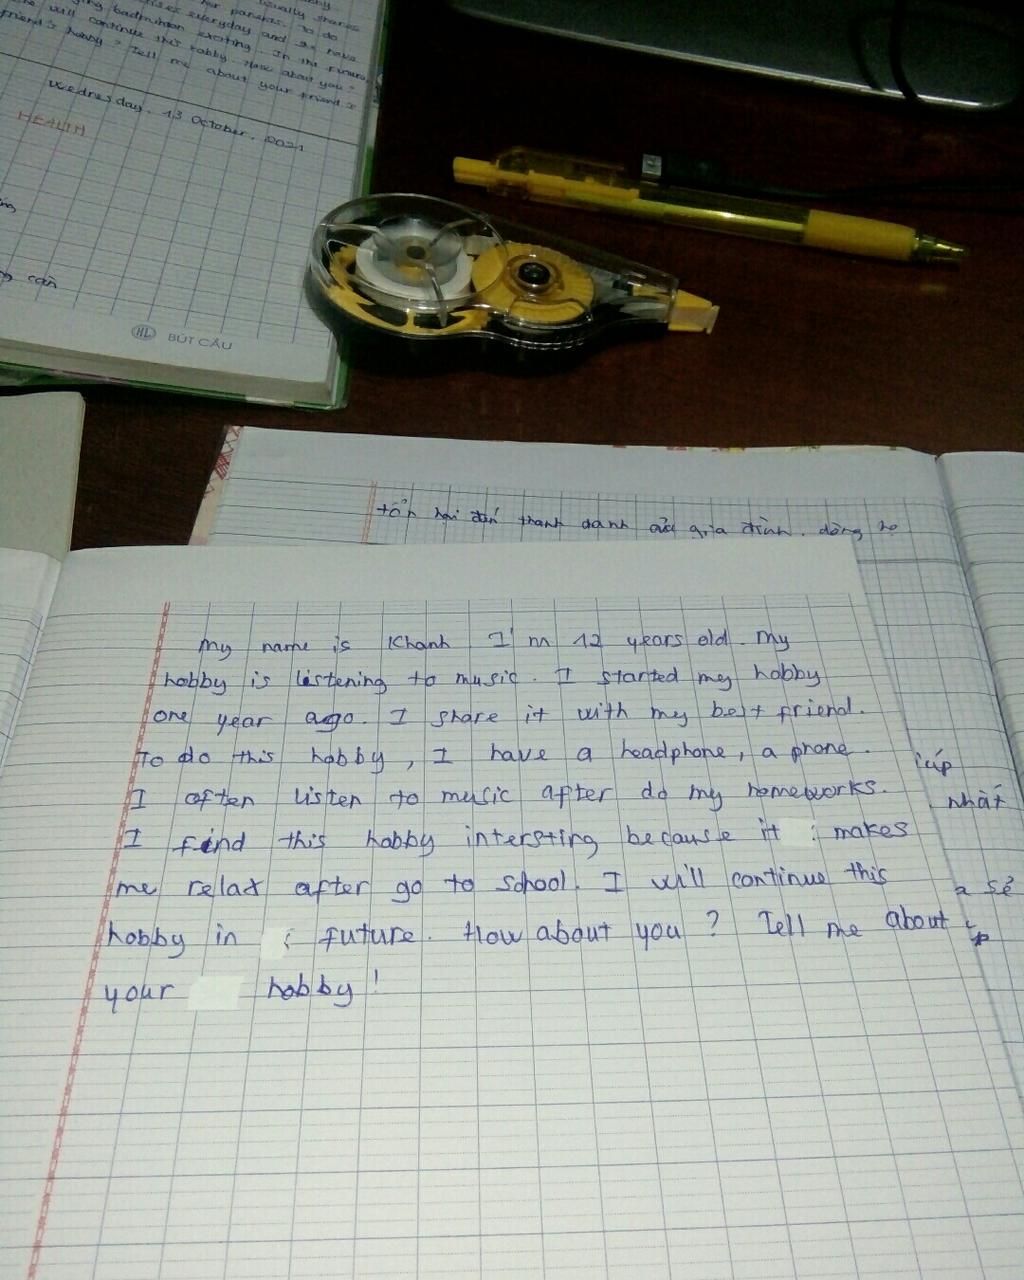 usually shares
her parents. To do
everyday and she have
badminton exciting. In the future,
will continue this hobby. How about you?
friend's hobby? Tell me about your friend's
Wednesday, 13 October, 2021
HEALTH
cần
HL BÚT CÂU
tổn hại đến thanh danh của gia đình, dòng họ
My name is Khanh I'm 12 years old. My
hobby is listening to music. I started my hobby
one year ago. I share it with my best friend.
To do this hobby, I have a headphone, a phone.
I often listen to music after do my homeworks.
I find this hobby intersting because it makes
me relax after go to school. I will continue this
hobby in future. How about you? Tell me about
your hobby!
nhất